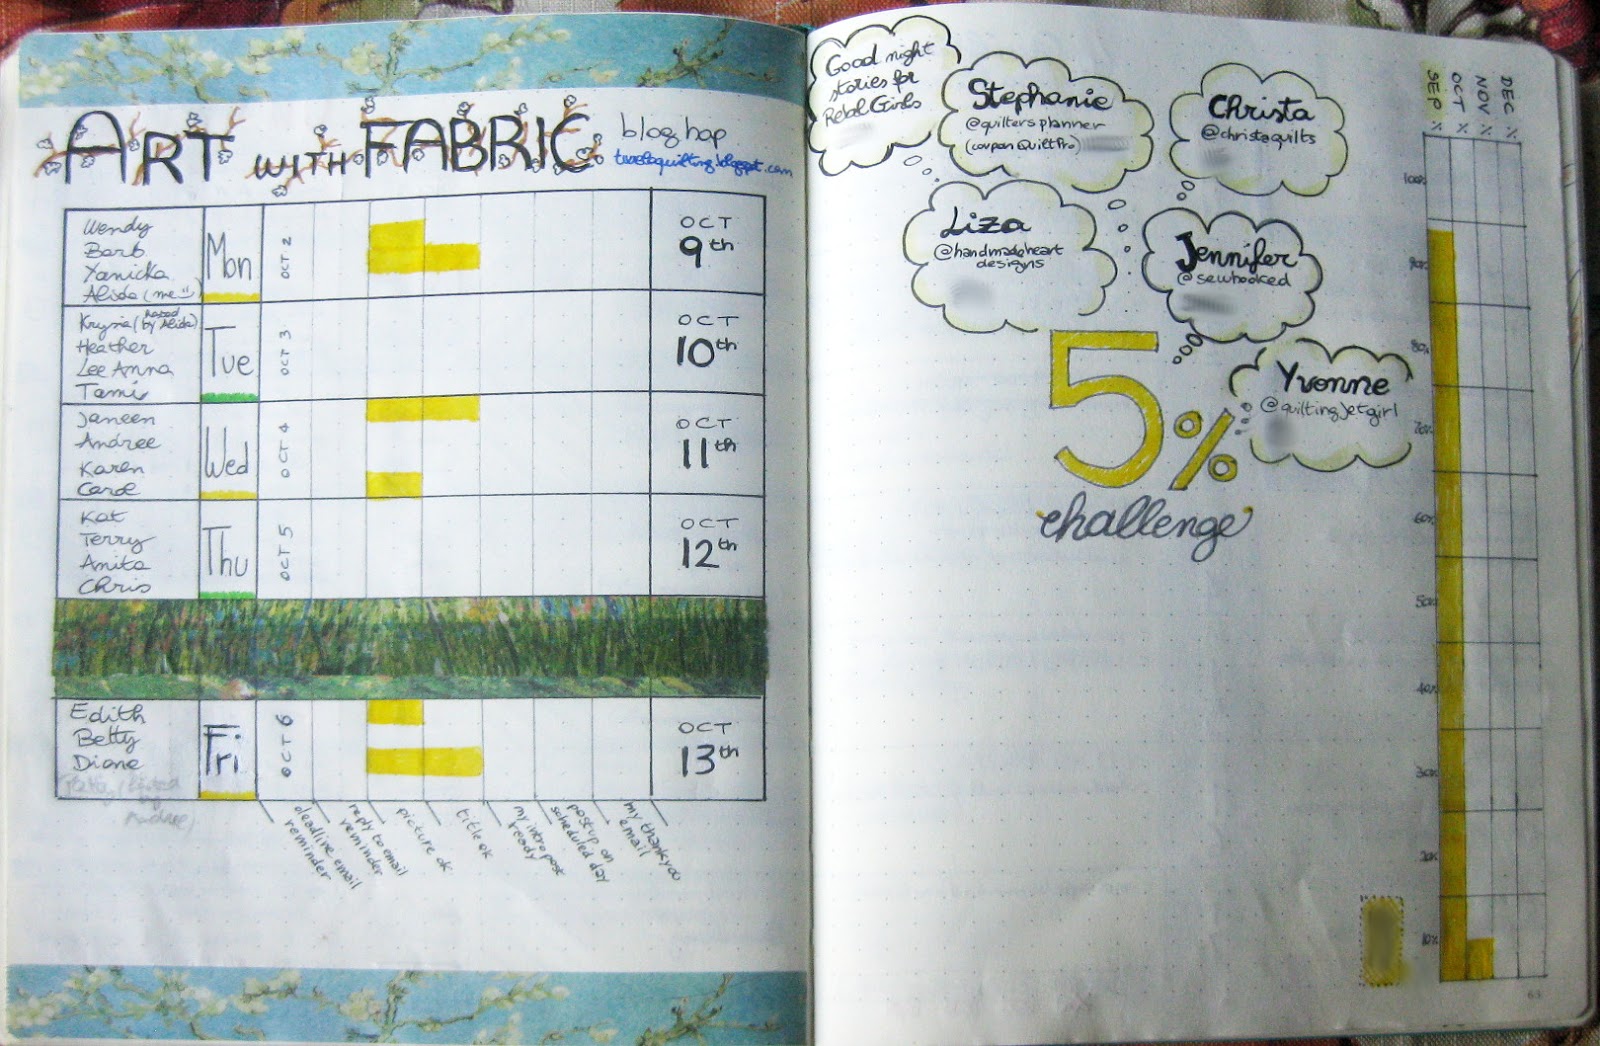 ART WITH FABRIC blog hop
Wendy
Barb
Yanicka
Alida (me)
Mon
OCT 2
OCT
9th
Krysia (hosted by Alida)
Heather
Lee Anna
Tami
Tue
OCT 3
OCT
10th
Janeen
Andree
Karen
Carol
Wed
OCT 4
OCT
11th
Kat
Terry
Anita
Chris
Thu
OCT 5
OCT
12th
Edith
Betty
Diane
Fri
OCT 6
OCT
13th
deadline email
reminder
reply to email
reminder
picture ok
title ok
my intro post
ready
post up on
scheduled day
my thank you
email
Good night
stories for
Rebel Girls
Stephanie
@quiltersplanner
(coupon QuiltPro)
Christa
@christaquilts
Liza
@handmadeheart
designs
Jennifer
@sewhooked
Yvonne
@quiltingjetgirl
5%
challenge
SEP %
OCT %
NOV %
DEC %
100%
90%
80%
70%
60%
50%
40%
30%
20%
10%